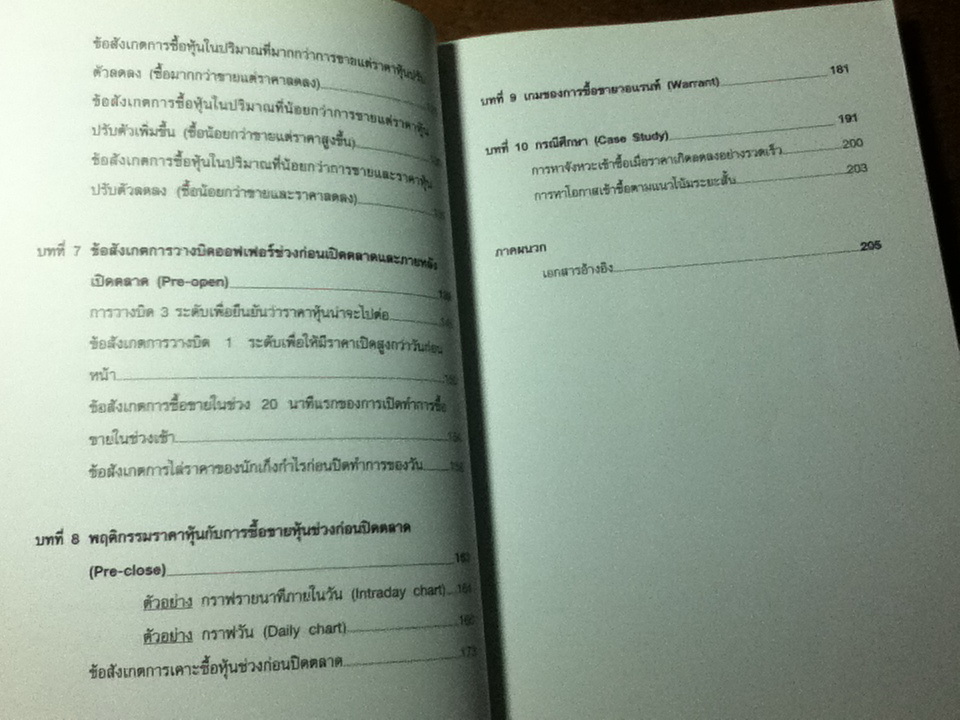 ข้อสังเกตการซื้อหุ้นในปริมาณที่มากกว่าการขายแต่ราคาหุ้นปรับ
ตัวลดลง (ซื้อมากกว่าขายแต่ราคาลดลง)
ข้อสังเกตการซื้อหุ้นในปริมาณที่น้อยกว่าการขายแต่ราคาหุ้น
ปรับตัวเพิ่มขึ้น (ซื้อน้อยกว่าขายแต่ราคาสูงขึ้น)
ข้อสังเกตการซื้อหุ้นในปริมาณที่น้อยกว่าการขายและราคาหุ้น
ปรับตัวลดลง (ซื้อน้อยกว่าขายและราคาลดลง)
บทที่ 7 ข้อสังเกตการวางบิดออฟเฟอร์ช่วงก่อนเปิดตลาดและภายหลัง
เปิดตลาด (Pre-open)
การวางบิด 3 ระดับเพื่อยืนยันว่าราคาหุ้นน่าจะไปต่อ
ข้อสังเกตการวางบิด 1 ระดับเพื่อให้มีราคาเปิดสูงกว่าวันก่อน
หน้า
ข้อสังเกตการซื้อขายในช่วง 20 นาทีแรกของการเปิดทำการซื้อ
ขายในช่วงเช้า
ข้อสังเกตการไล่ราคาของนักเก็งกำไรก่อนปิดทำการของวัน
บทที่ 8 พฤติกรรมราคาหุ้นกับการซื้อขายหุ้นช่วงก่อนปิดตลาด
(Pre-close) 163
ตัวอย่าง กราฟรายนาทีภายในวัน (Intraday chart) 164
ตัวอย่าง กราฟวัน (Daily chart)
ข้อสังเกตการเคาะซื้อหุ้นช่วงก่อนปิดตลาด 173
บทที่ 9 เกมของการซื้อขายวอแรนท์ (Warrant) 181
บทที่ 10 กรณีศึกษา (Case Study) 191
การหาจังหวะเข้าซื้อเมื่อราคาเกิดลดลงอย่างรวดเร็ว 200
การหาโอกาสเข้าซื้อตามแนวโน้มระยะสั้น 203
ภาคผนวก 205
เอกสารอ้างอิง